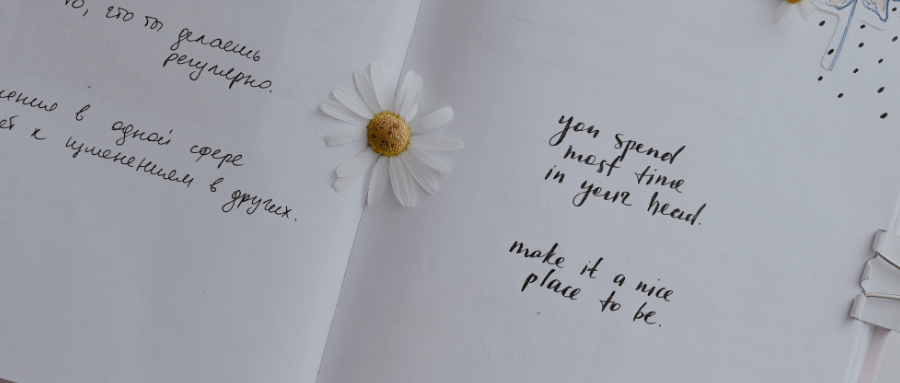 то, что ты
делаешь
регулярно.
в одной сфере
к изменениям в других.
you spend
most time
in your head.
make it a nice
place to be.